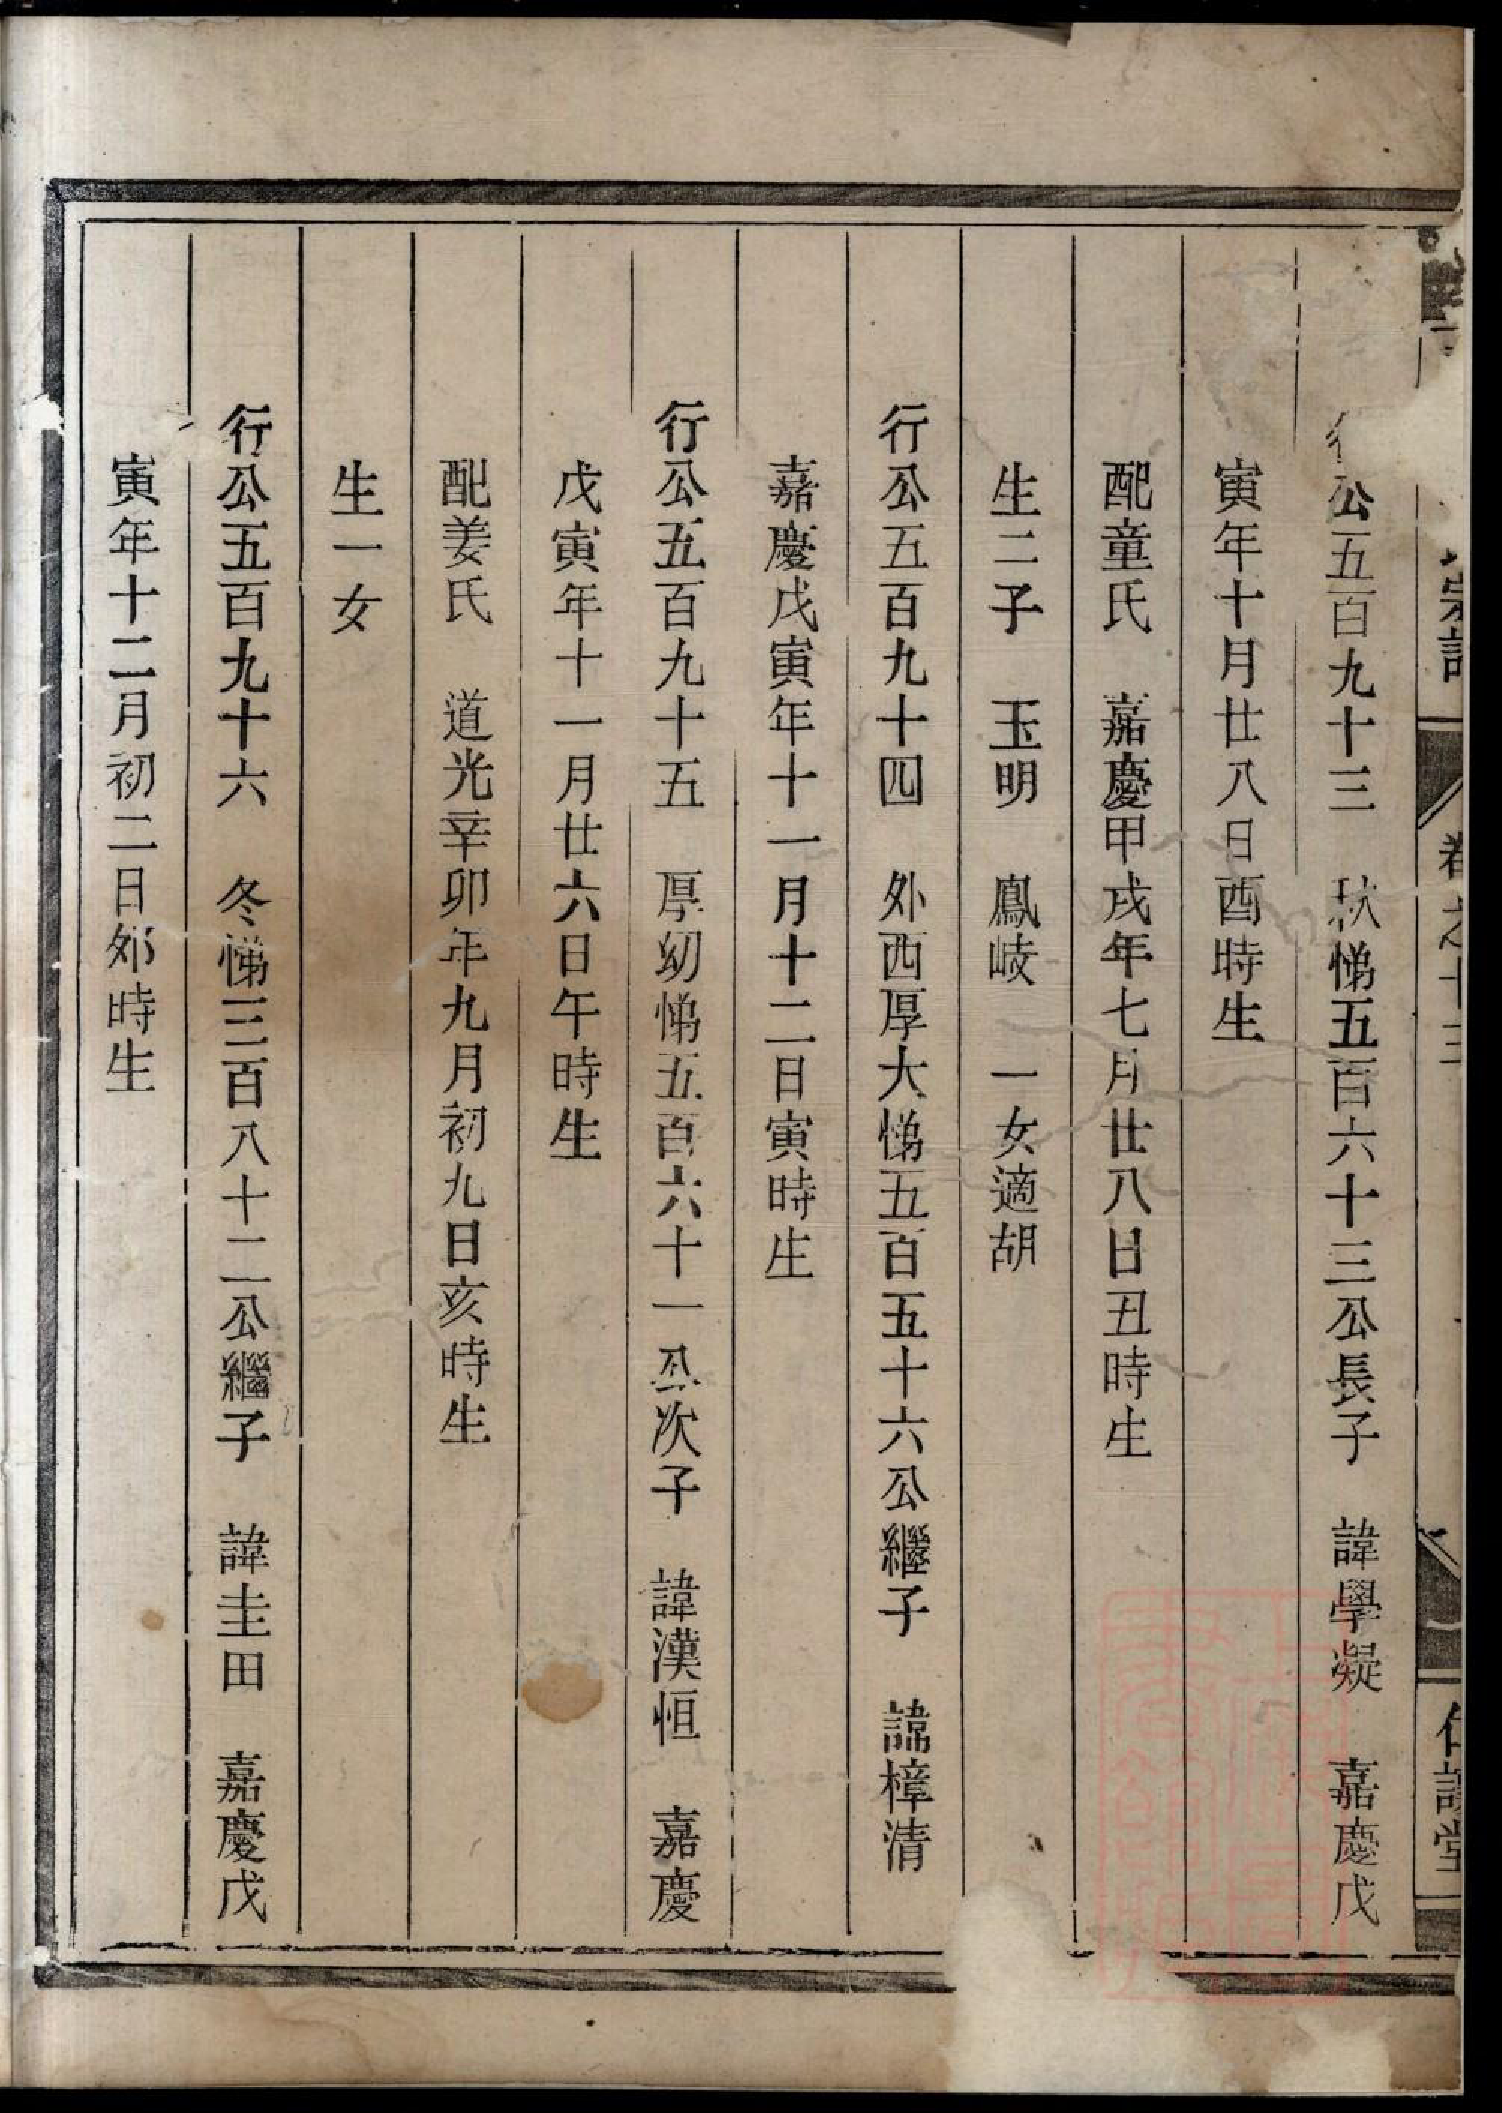 宗譜 卷之十三
行公五百九十三 秋悌五百六十三公長子 諱學凝 嘉慶戊
寅年十月廿八日酉時生
配童氏 嘉慶甲戌年七月廿八日丑時生
生二子 玉明 鳳岐 一女適胡
行公五百九十四 外西厚大悌五百五十六公繼子 諱樟清
嘉慶戊寅年十一月十二日寅時生
行公五百九十五 厚幼悌五百六十一公次子 諱漢恒 嘉慶
戊寅年十一月廿六日午時生
配姜氏 道光辛卯年九月初九日亥時生
生一女
行公五百九十六 冬悌三百八十二公繼子 諱圭田 嘉慶戊
寅年十二月初二日夘時生